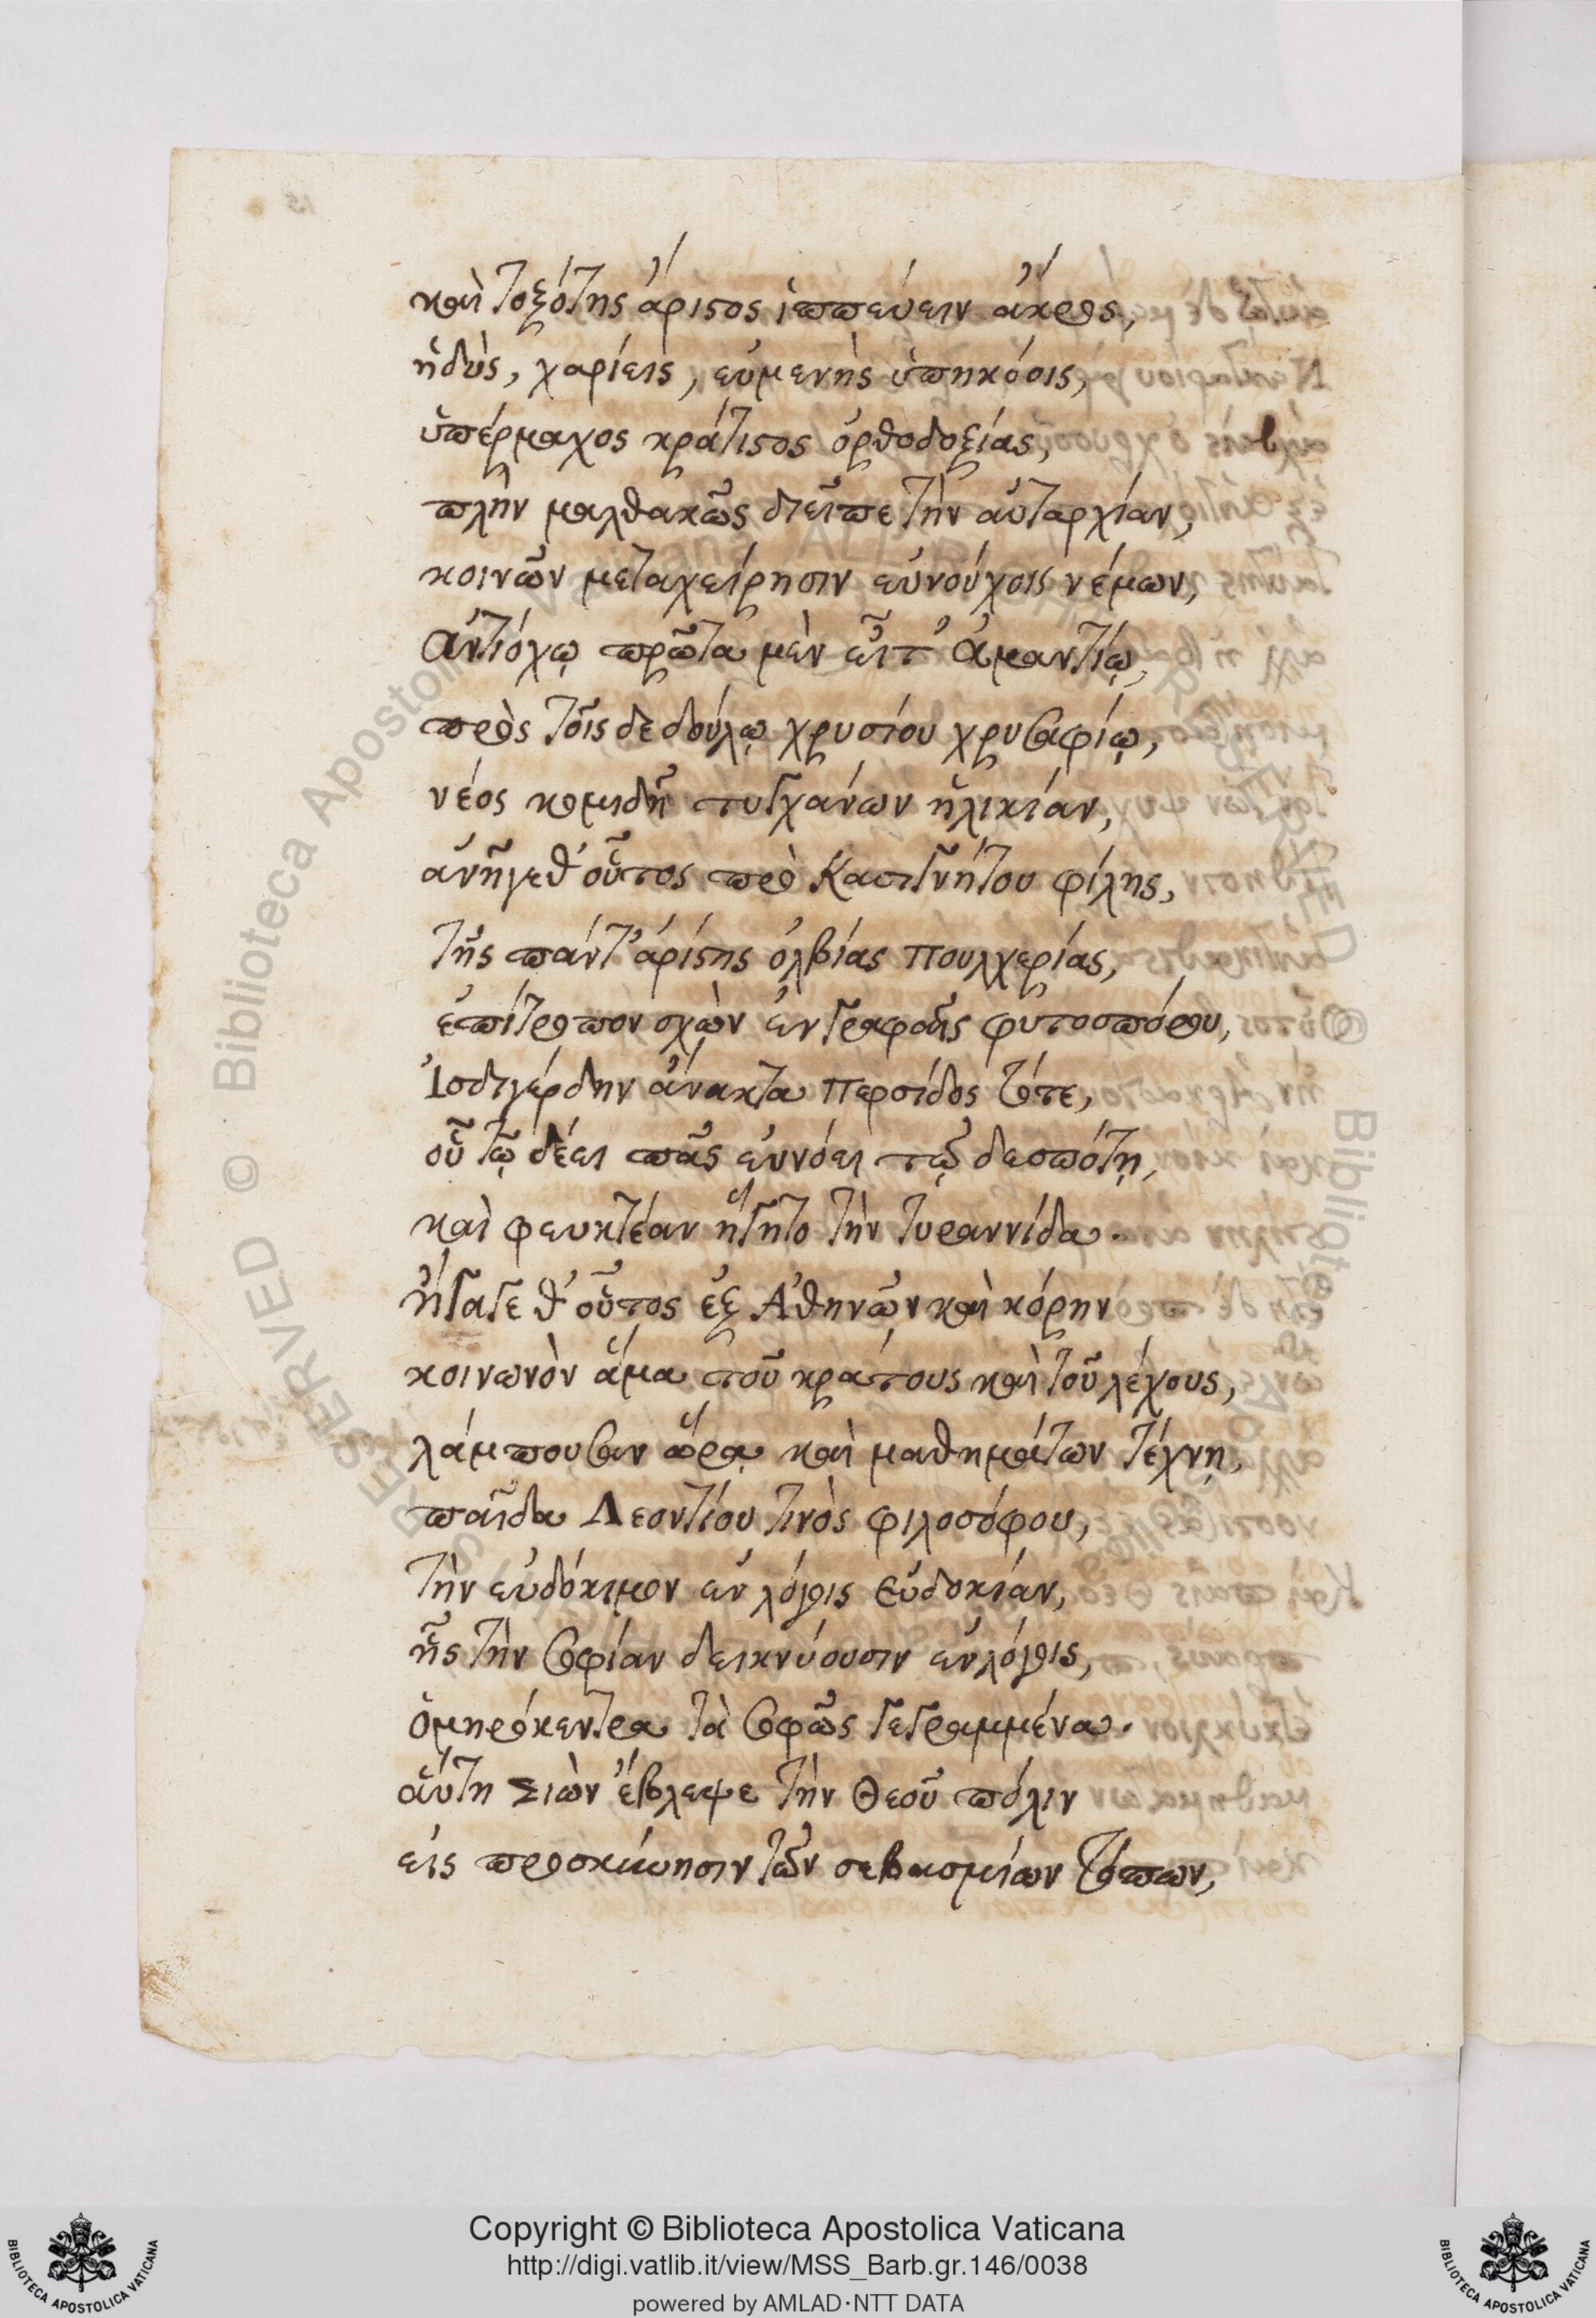 καὶ τοξότης ἄριστος ἱππεύειν ἄκρος,
ἡδὺς, χαρίεις, εὐμενὴς ὑπηκόοις,
ὑπέρμαχος κράτιστος ὀρθοδοξίας,
πλὴν μαλθακῶς διεῖπε τὴν αὐταρχίαν,
κοινῶν μεταχείρησιν εὐνούχοις νέμων,
Ἀντιόχῳ πρῶτα μὲν εἶτ' Ἀμαντίῳ,
πρὸς τοῖς δε δούλῳ χρυσίου χρυσαφίῳ,
νέος κομιδῆ τυγχάνων ἡλικίαν,
ἀνῆγεθ' οὗτος πρὸ Κασιγνήτου φίλης,
τῆς πάντ' ἀρίστης ὀλβίας Πουλχερίας,
ἐπίτροπον σχὼν ἐν γραφαῖς φυτοσπόρου,
Ἰσδιγέρδην ἄνακτα Περσίδος τότε,
οὗ τῷ δέει πᾶς εὐνόει τῷ δεσπότῃ,
καὶ φευκτέαν ἥγητο τὴν τυραννίδα.
ἠγάγεθ' οὗτος ἐξ Ἀθηνῶν καὶ κόρην
κοινωνὸν ἅμα τοῦ κράτους καὶ τοῦ λέχους,
λάμπουσαν ὥρᾳ καὶ μαθημάτων τέχνῃ,
παῖδα Λεοντίου τινὸς φιλοσόφου,
τὴν εὐδόκιμον ἐν λόγοις Εὐδοκίαν,
ἧς τὴν σοφίαν δεικνύουσιν ἐν λόγοις,
ὁμηρόκεντρα τὰ σοφῶς γεγραμμένα.
αὕτη Σιὼν ἔβλεψε τὴν Θεοῦ πόλιν
εἰς προσκύνησιν τῶν σεβασμίων τόπων,
Copyright © Biblioteca Apostolica Vaticana
http://digi.vatlib.it/view/MSS_Barb.gr.146/0038
powered by AMLAD·NTT DATA